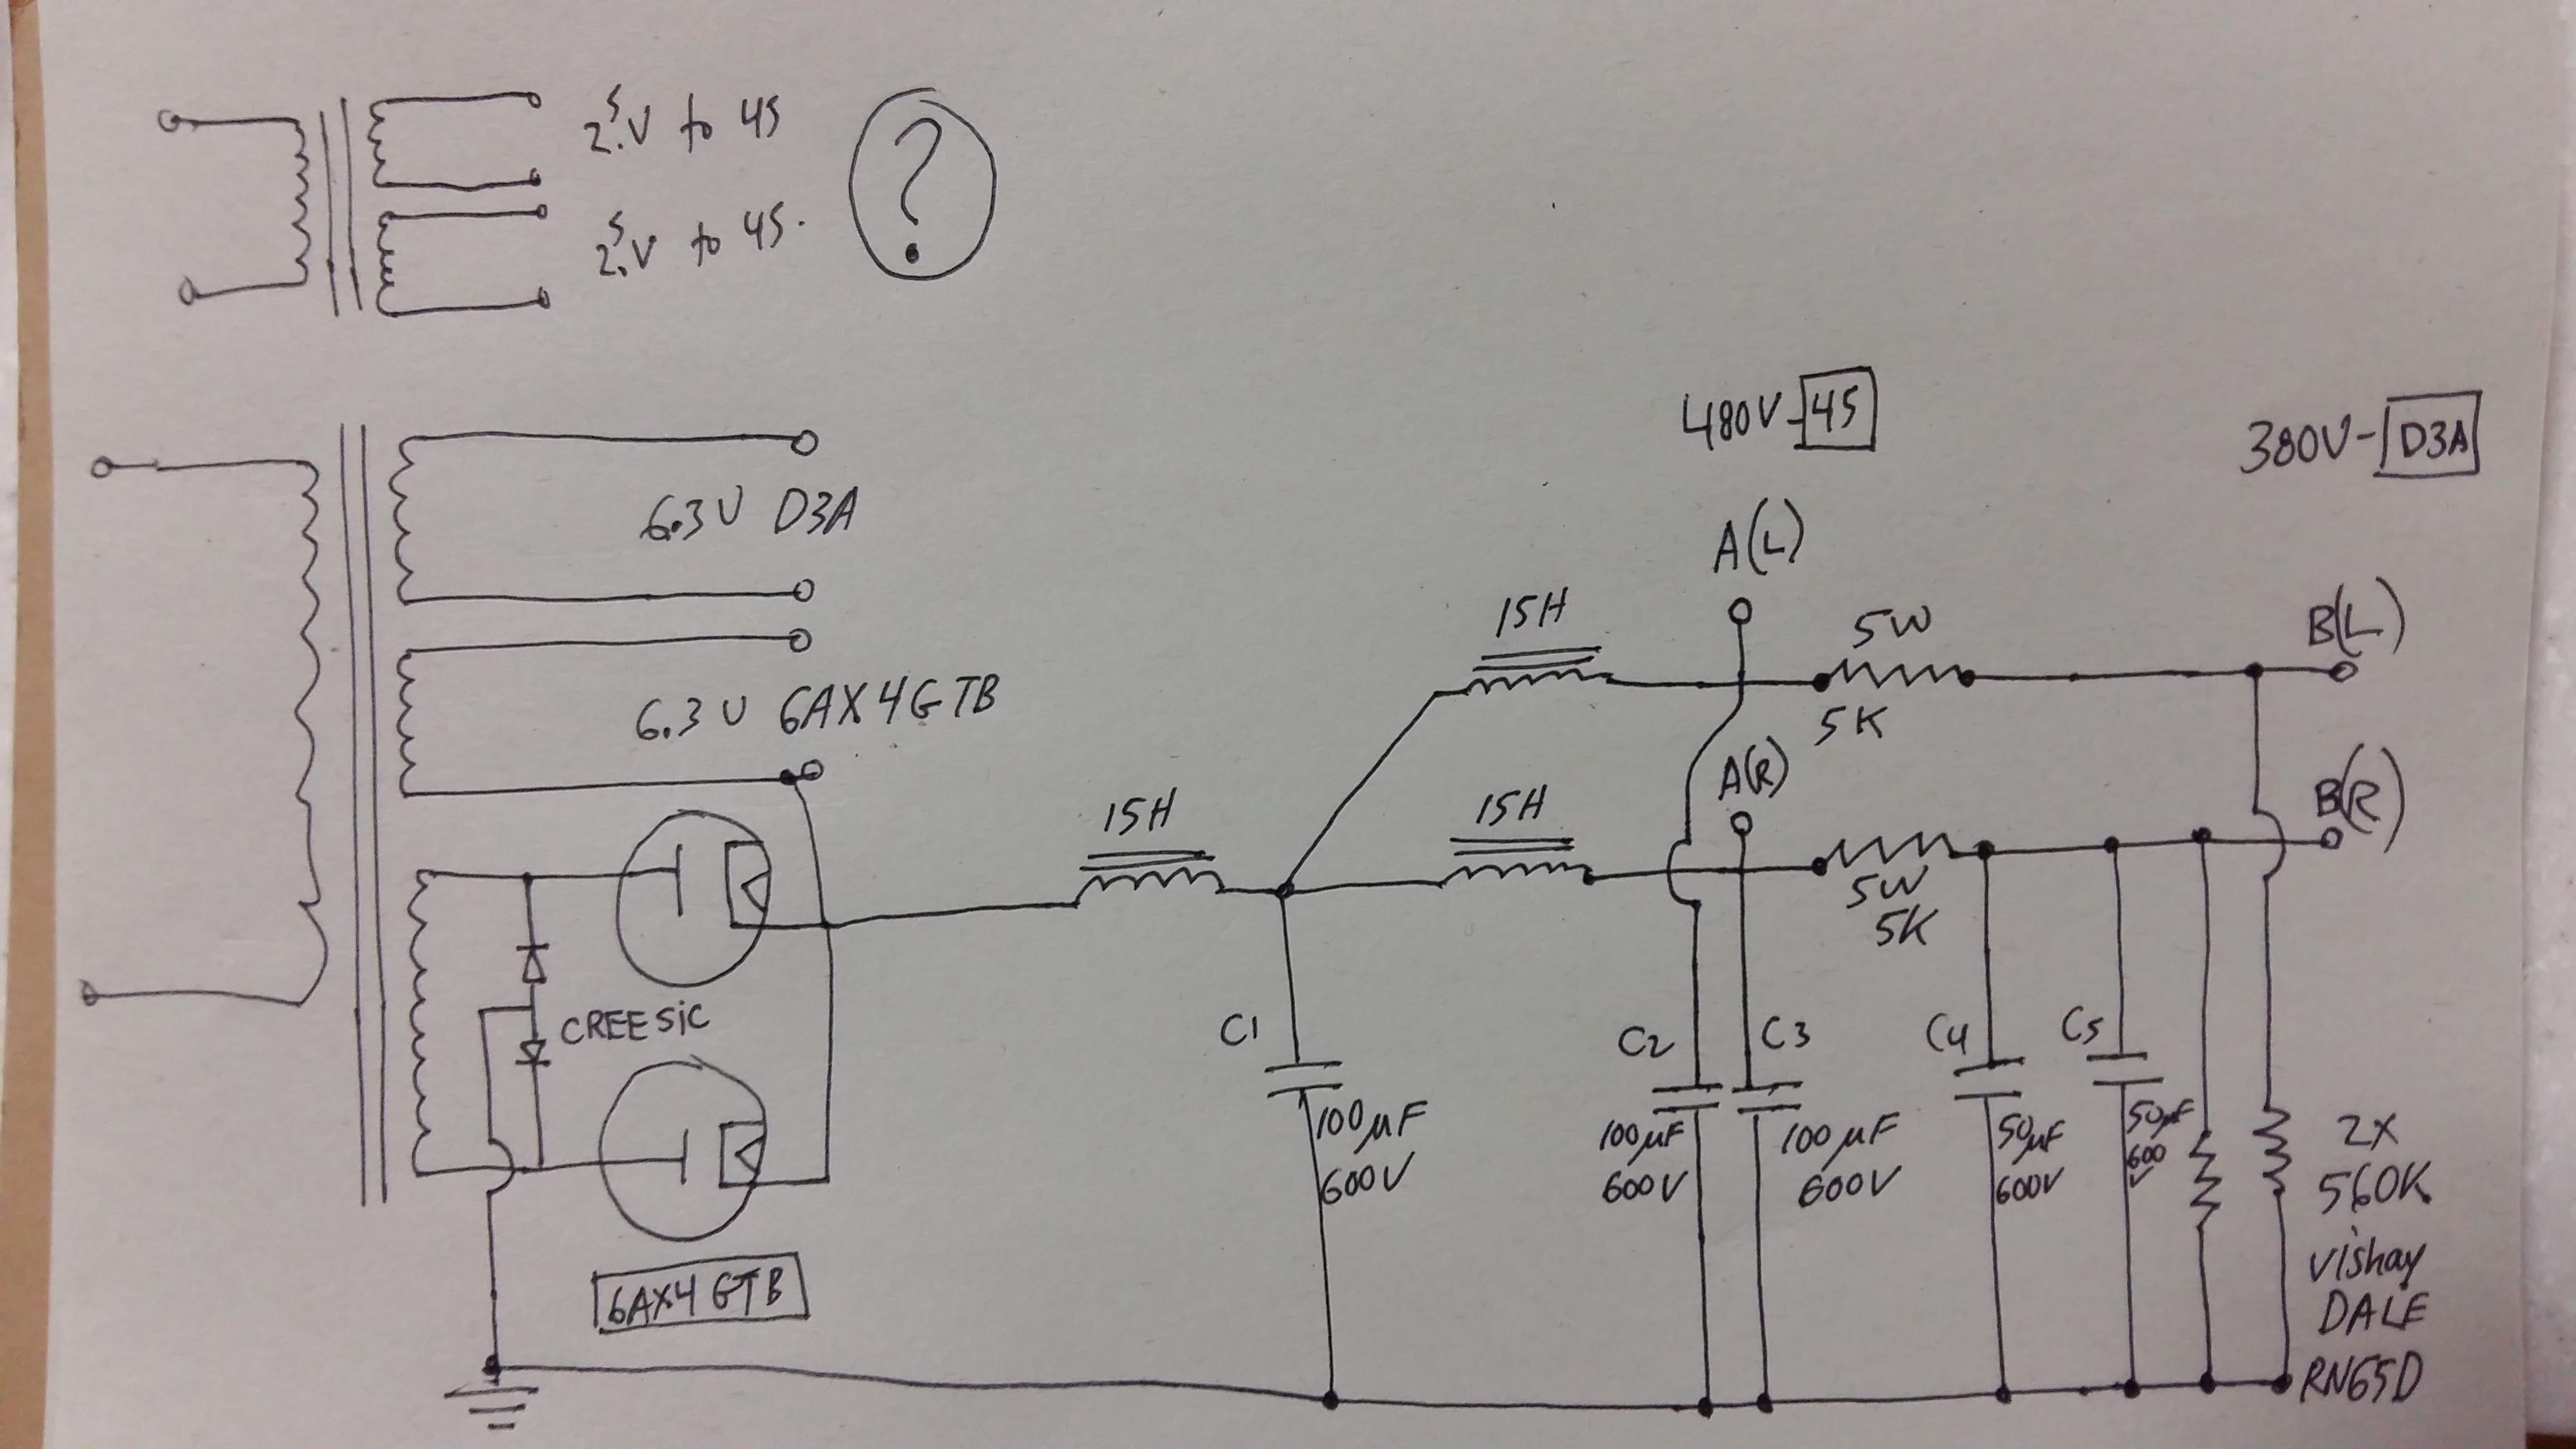 2.5V to 45
2.5V to 45.
?
480V-45
380V-D3A
6.3V D3A
A(L)
15H
5W
5K
B(L)
6.3V 6AX4GTB
A(R)
15H
15H
5W
5K
B(R)
CREE SiC
C1
100μF
600V
C2
100μF
600V
C3
100μF
600V
C4
50μF
600V
C5
50μF
600
V
2X
560K
Vishay
DALE
RN65D
6AX4 GTB